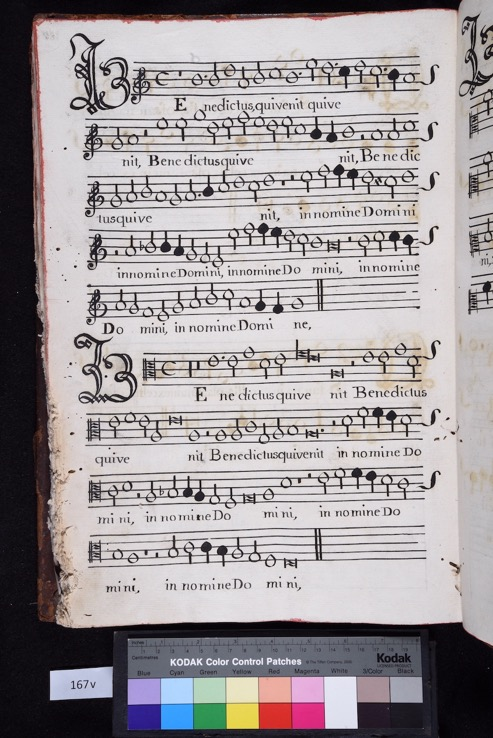 BEnedictus, qui venit qui ve
nit, Benedictus qui ve nit, Benedic
tus qui ve nit, in nomine Domini
in nomine Domini, in nomine Do mini, in nomine
Do mini, in nomine Domi ne,
BEnedictus qui ve nit Benedictus
qui ve nit Benedictus qui venit in nomine Do
mini, in nomine Do mini, in nomine Do
mini, in nomine Do mini,
167v
Centimetres
KODAK Color Control Patches
Kodak
Blue Cyan Green Yellow Red Magenta White 3/Color Black